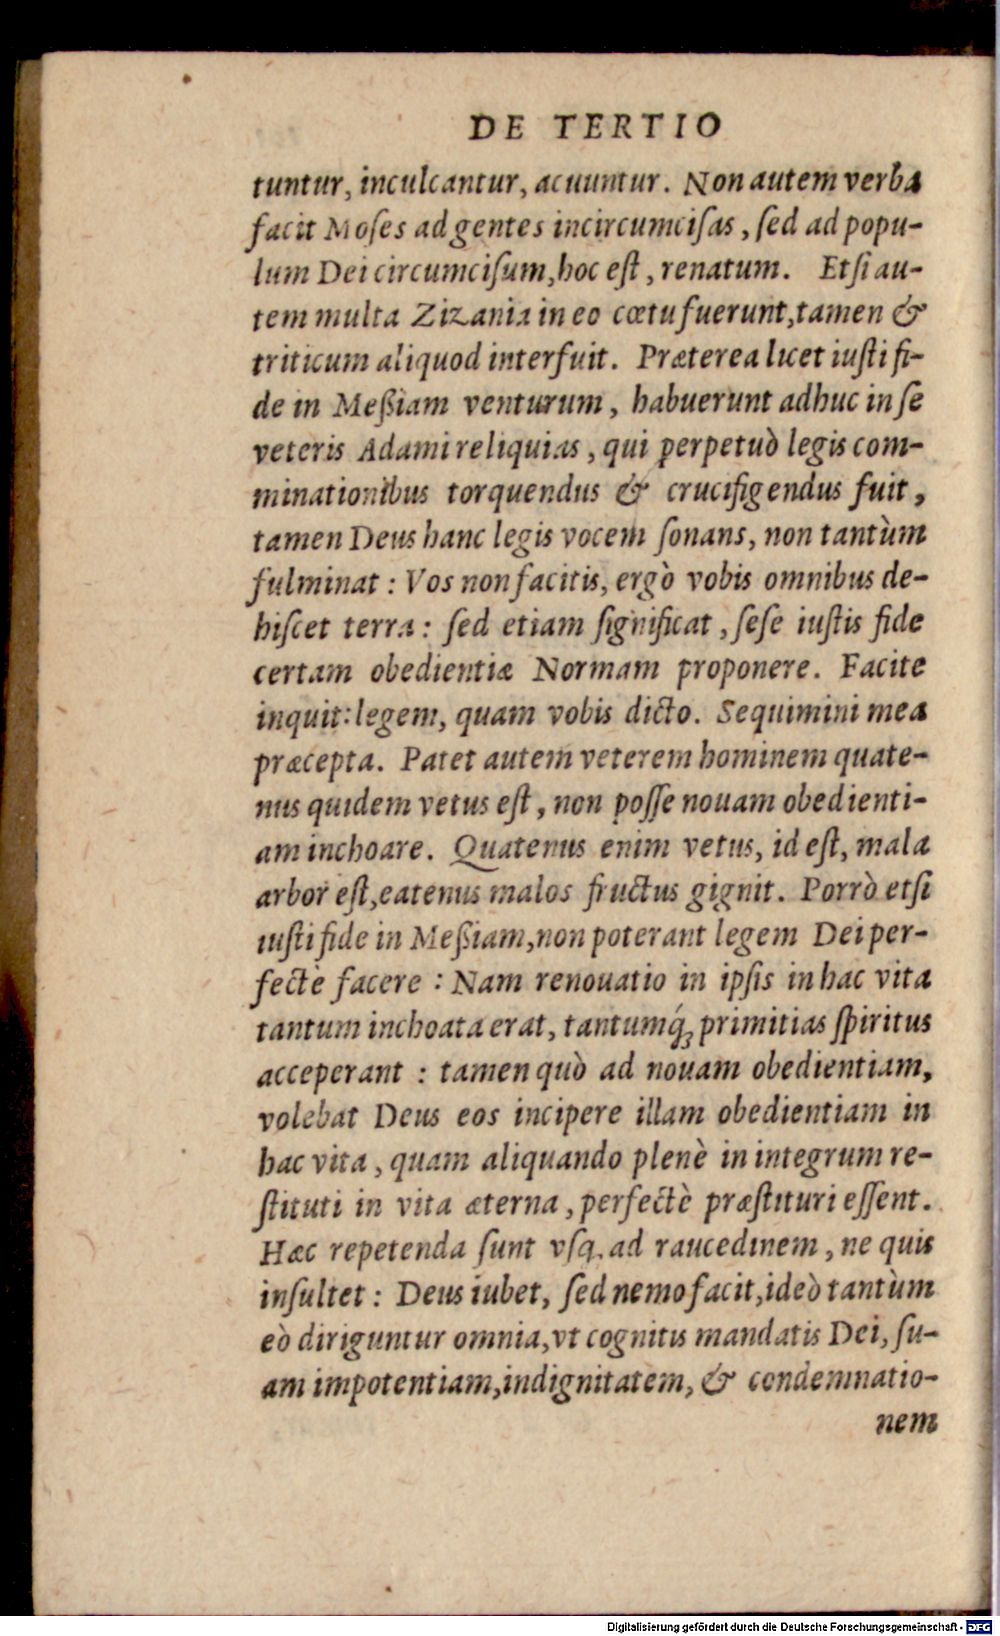 DE TERTIO
tuntur, inculcantur, acuuntur. Non autem verba
facit Moſes ad gentes incircumciſas, ſed ad popu-
lum Dei circumciſum, hoc eſt, renatum. Etſi au-
tem multa Zizania in eo cœtu fuerunt, tamen &
triticum aliquod interfuit. Præterea licet iuſti fi-
de in Meßiam venturum, habuerunt adhuc in ſe
veteris Adami reliquias, qui perpetuò legis com-
minationibus torquendus & crucifigendus fuit,
tamen Deus hanc legis vocem ſonans, non tantùm
fulminat: Vos non facitis, ergò vobis omnibus de-
hiſcet terra: ſed etiam ſignificat, ſeſe iuſtis fide
certam obedientiæ Normam proponere. Facite
inquit: legem, quam vobis dicto. Sequimini mea
præcepta. Patet autem veterem hominem quate-
nus quidem vetus eſt, non poſſe nouam obedienti-
am inchoare. Quatenus enim vetus, id eſt, mala
arbor eſt, eatenus malos fructus gignit. Porrò etſi
iuſti fide in Meßiam, non poterant legem Dei per-
fectè facere: Nam renouatio in ipſis in hac vita
tantum inchoata erat, tantumq́; primitias ſpiritus
acceperant: tamen quò ad nouam obedientiam,
volebat Deus eos incipere illam obedientiam in
hac vita, quam aliquando plenè in integrum re-
ſtituti in vita æterna, perfectè præſtituri eſſent.
Hæc repetenda ſunt vſq. ad raucedinem, ne quis
inſultet: Deus iubet, ſed nemo facit, ideò tantùm
eò diriguntur omnia, vt cognitis mandatis Dei, ſu-
am impotentiam, indignitatem, & condemnatio-
nem
Digitalisierung gefördert durch die Deutsche Forschungsgemeinschaft - DFG